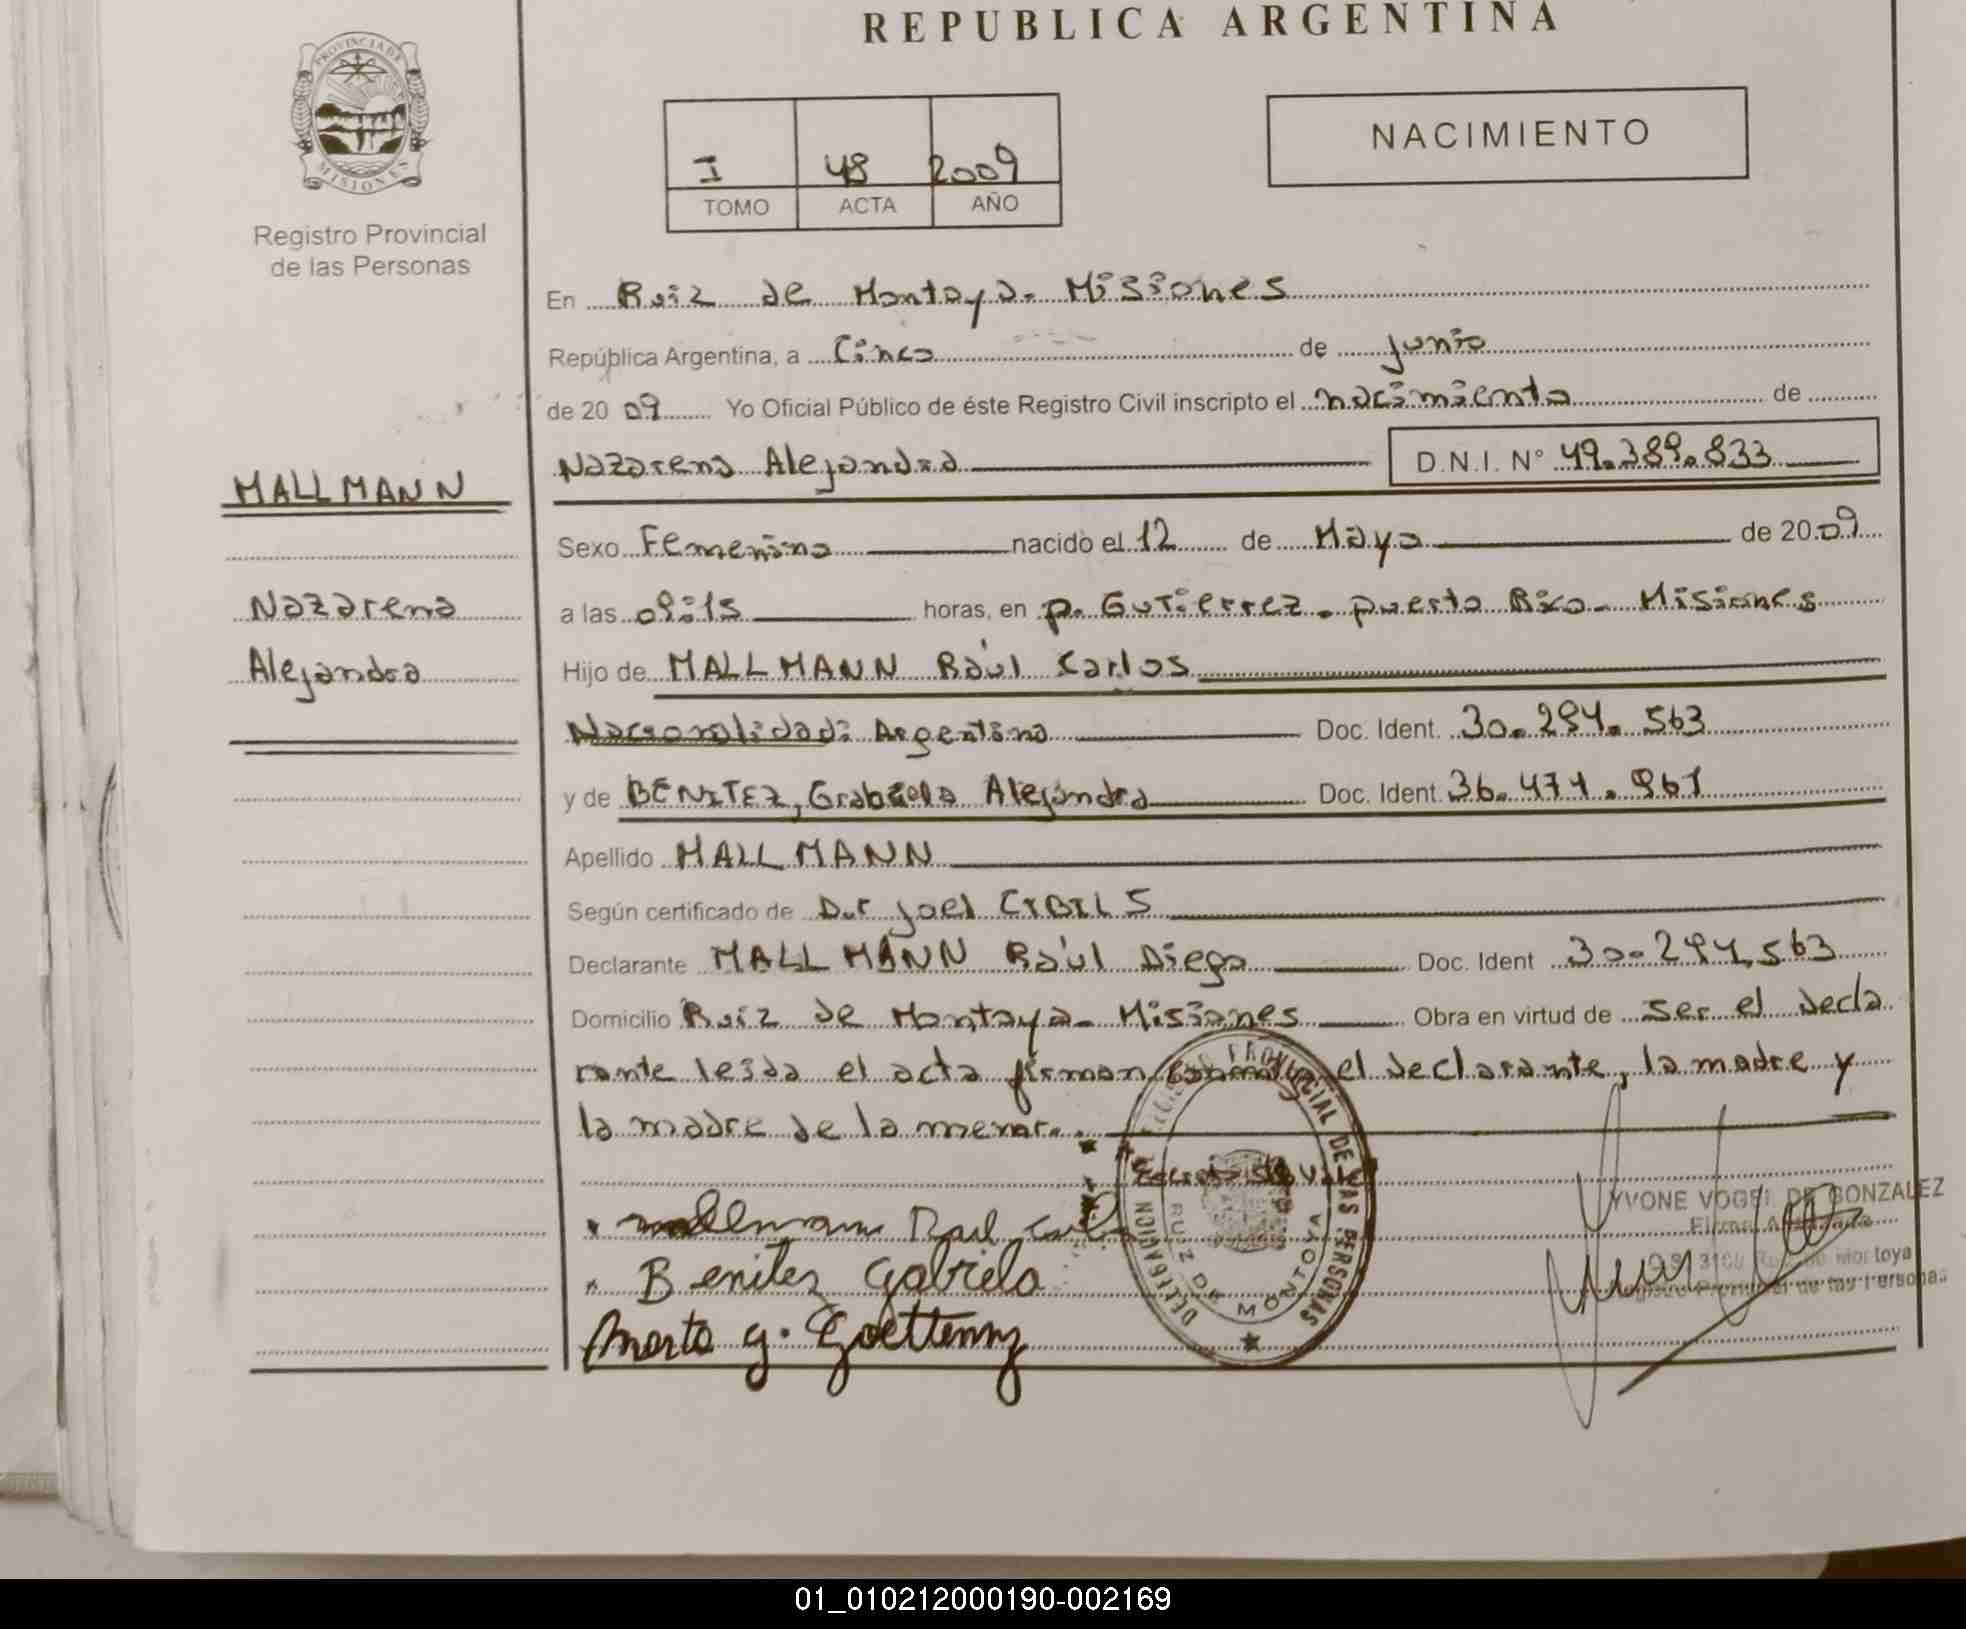 REPUBLICA ARGENTINA
PROVINCIA DE MISIONES
Registro Provincial
de las Personas
I 48 2009
TOMO ACTA AÑO
NACIMIENTO
En Ruiz de Montoya. Misiones
República Argentina, a Cinco de junio
de 20 09 Yo Oficial Público de éste Registro Civil inscripto el nacimiento de
Nazarena Alejandra D.N.I. N° 49.389.833
MALLMANN
Nazarena
Alejandra
Sexo Femenino nacido el 12 de Mayo de 20 09
a las 09:15 horas, en p. Gutierrez. puerto Rico - Misiones
Hijo de MALLMANN Raúl Carlos
Nacionalidad: Argentino Doc. Ident. 30.294.563
y de BENITEZ, Grabiela Alejandra Doc. Ident. 36.471.961
Apellido MALLMANN
Según certificado de D.r Joel CIBILS
Declarante MALLMANN Raúl Diego Doc. Ident 30.294.563
Domicilio Ruiz de Montoya - Misiones Obra en virtud de ser el decla
rante leida el acta firman el declarante, la madre y
la madre de la menor.
Mallmann Raul
Benitez Gabriela
Marta G.
REGISTRO PROVINCIAL DE LAS PERSONAS
DELEGACION
RUIZ DE MONTOYA
YVONE VOGEL DE GONZALEZ
Firma Autorizada
Ruiz de Montoya
Registro Provincial de las Personas
01_010212000190-002169